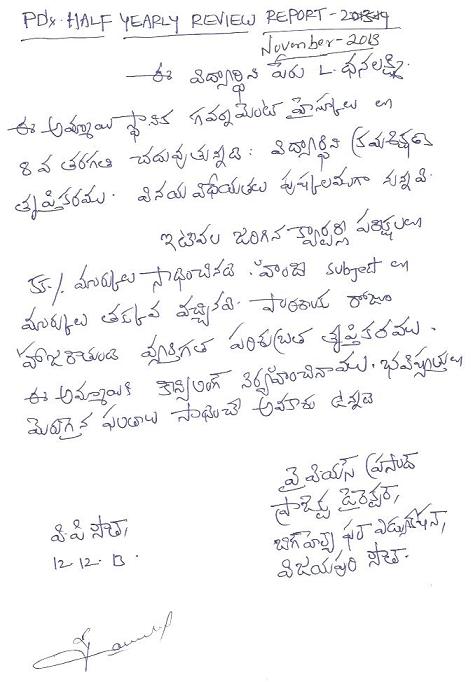 PDs HALF YEARLY REVIEW REPORT - 2013-14
November-2013
ఈ విద్యార్థిని పేరు L. ధనలక్ష్మి.
ఈ అమ్మాయి స్థానిక గవర్నమెంట్ హైస్కూలు లో
8 వ తరగతి చదువుతున్నది. విద్యార్థిని క్రమశిక్షణ
తృప్తికరము. వినయ విధేయతలు పుష్కలముగా నున్నవి.
ఇటీవల జరిగిన క్వార్టర్లీ పరీక్షలలో
% మార్కులు సాధించినది. హిందీ subject లో
మార్కులు తక్కువ వచ్చినవి. పాఠశాల రోజూ
హాజరౌతుంది వ్యక్తిగత పరిశుభ్రత తృప్తికరము.
ఈ అమ్మాయికి కౌన్సిలింగ్ నిర్వహించినాము. భవిష్యత్తులో
మెరుగైన ఫలితాలు సాధించే అవకాశం ఉన్నది
వై పియస్ ప్రసాద్
ప్రాజెక్టు డైరెక్టర్,
బిగ్ హెల్ప్ ఫర్ ఎడ్యుకేషన్,
విజయపురి సౌత్.
వి.పి సౌత్,
12.12.13.